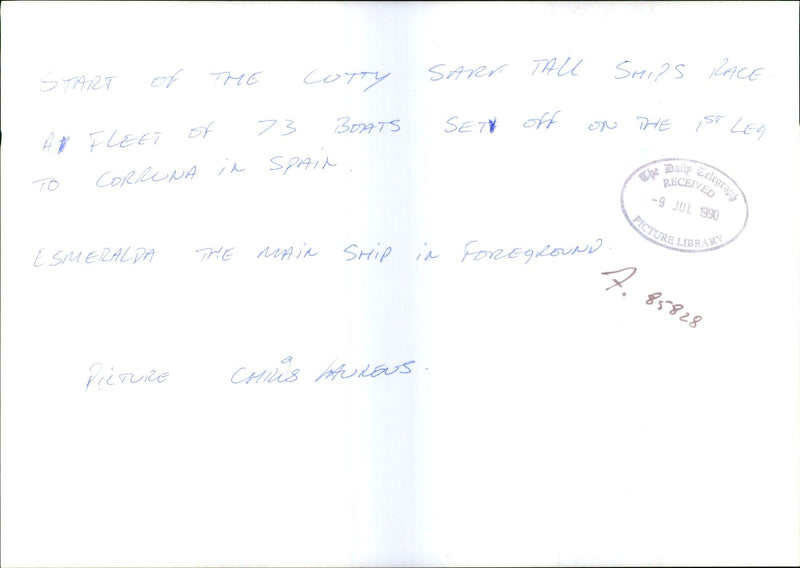 START OF THE CUTTY SARK TALL SHIPS RACE.
A FLEET OF 73 BOATS SET OFF ON THE 1ST LEG
TO CORRUNA IN SPAIN.
The Daily Telegraph
RECEIVED
-9 JUL 1990
PICTURE LIBRARY
ESMERALDA THE MAIN SHIP IN FOREGROUND.
7. 85828
PICTURE CHRIS LAURENS.